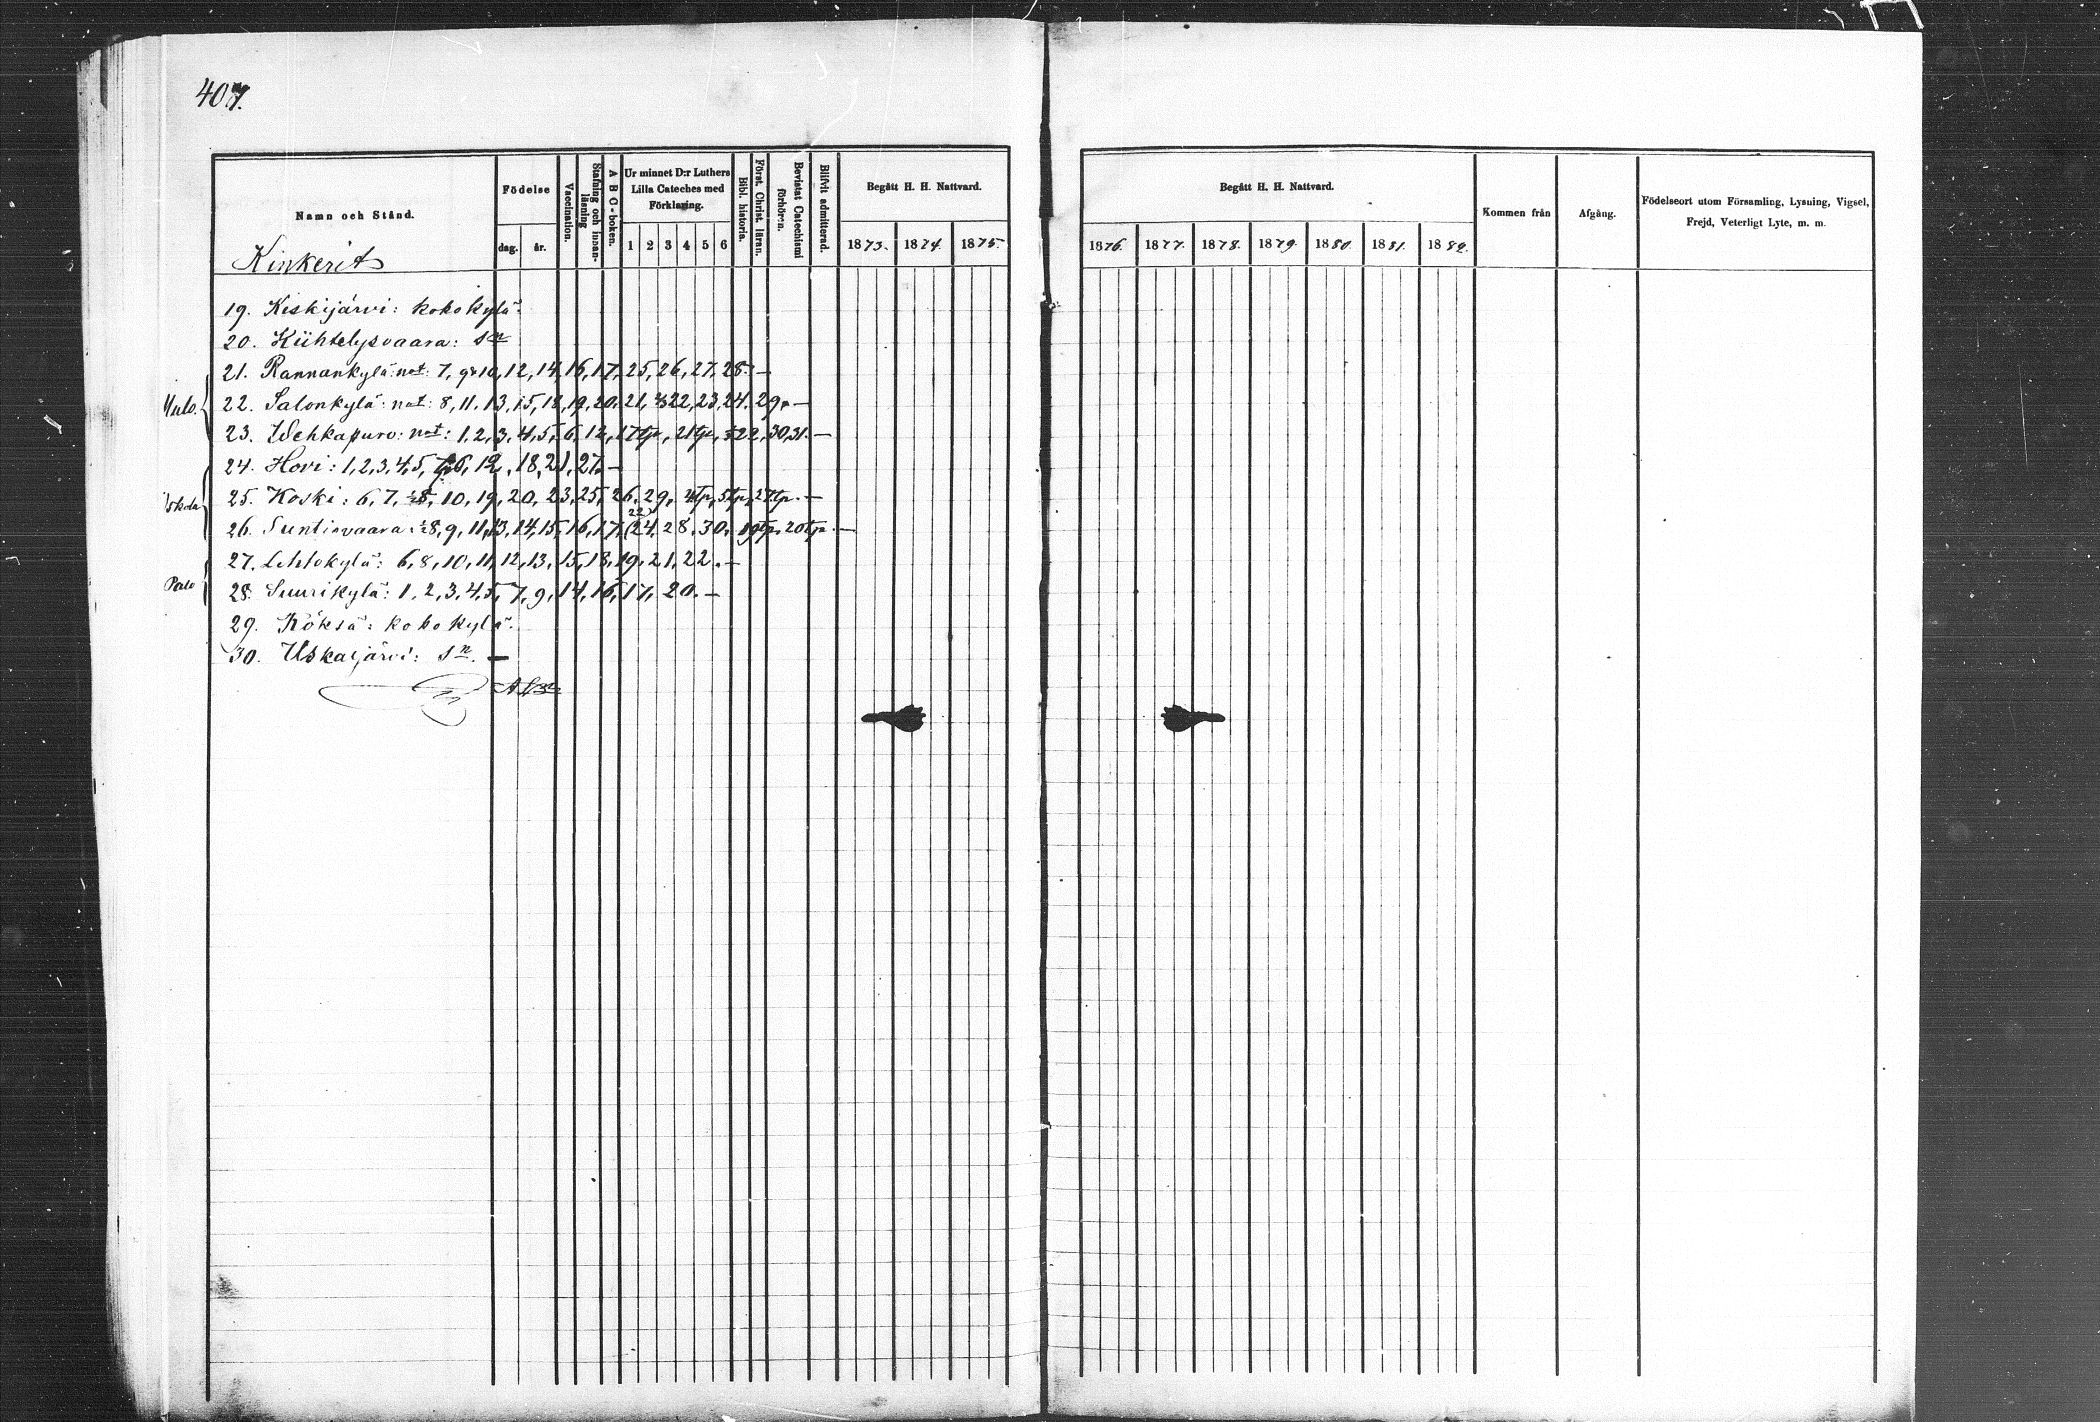 407.
Namn och Stånd.
Födelse
dag. år.
Vaccination.
Stafning och innan-läsning
A B C-boken.
Ur minnet D:r Luthers Lilla Cateches med Förklaring.
1 2 3 4 5 6
Bibl. historia.
Först. Christ. läran.
Bevistat Catechismi förhören.
Blifvit admitterad.
Begått H. H. Nattvard.
1873. 1874. 1875.
Begått H. H. Nattvard.
1876. 1877. 1878. 1879. 1880. 1881. 1882.
Kommen från
Afgång.
Födelseort utom Församling, Lysning, Vigsel,
Frejd, Veterligt Lyte, m. m.
Kinkerit
19. Keskijärvi: koko kylä.
20. Kiihtelysvaara: sn
21. Rannankylä: not: 7, 9, 10, 12, 14, 16, 17, 25, 26, 27, 28. —
22. Salonkylä: not: 8, 11, 13, 15, 18, 19, 20, 21, 22, 23, 24. 29. —
23. Wehkapuro: not: 1, 2, 3, 4, 5, 6, 12, 17tp, 21tp, 22, 30, 31. —
24. Hovi: 1, 2, 3, 4, 5, 6, 12, 18, 21, 27. —
25. Koski: 6, 7, ½8, 10, 19, 20, 23, 25, 26, 29, 4tp, 5tp, 27tp. —
26. Suntisvaara: ½8, 9, 11, 13, 14, 15, 16, 17, (22) 24, 28, 30, 19tp, 20tp. —
27. Lehtokylä: 6, 8, 10, 11, 12, 13, 15, 18, 19, 21, 22. —
Palo
28. Suurikylä: 1, 2, 3, 4, 5, 7, 9, 14, 16, 17, 20. —
29. Röksä: koko kylä.
30. Uskaljärvi: sn. —